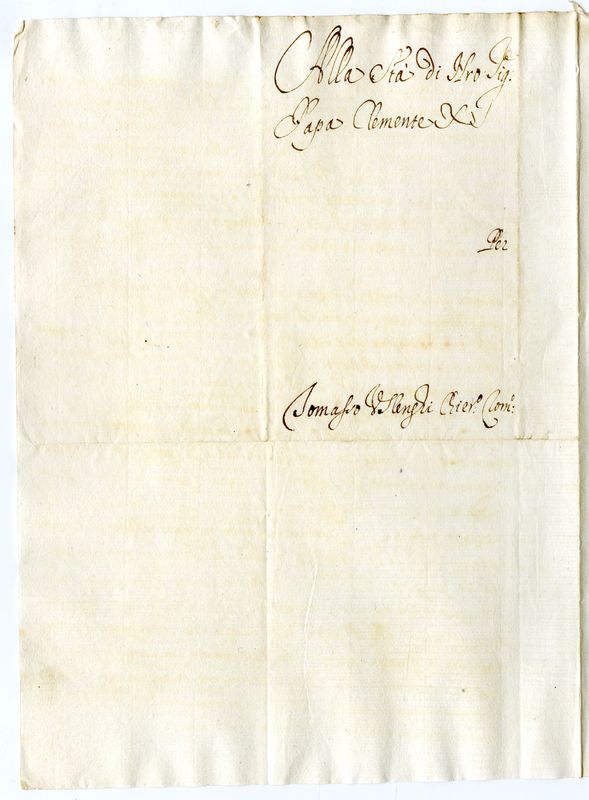 Alla Stà di Nro Sig.re
Papa Clemente XI
Per
Tomasso Uslenghi Chier.o Com.o